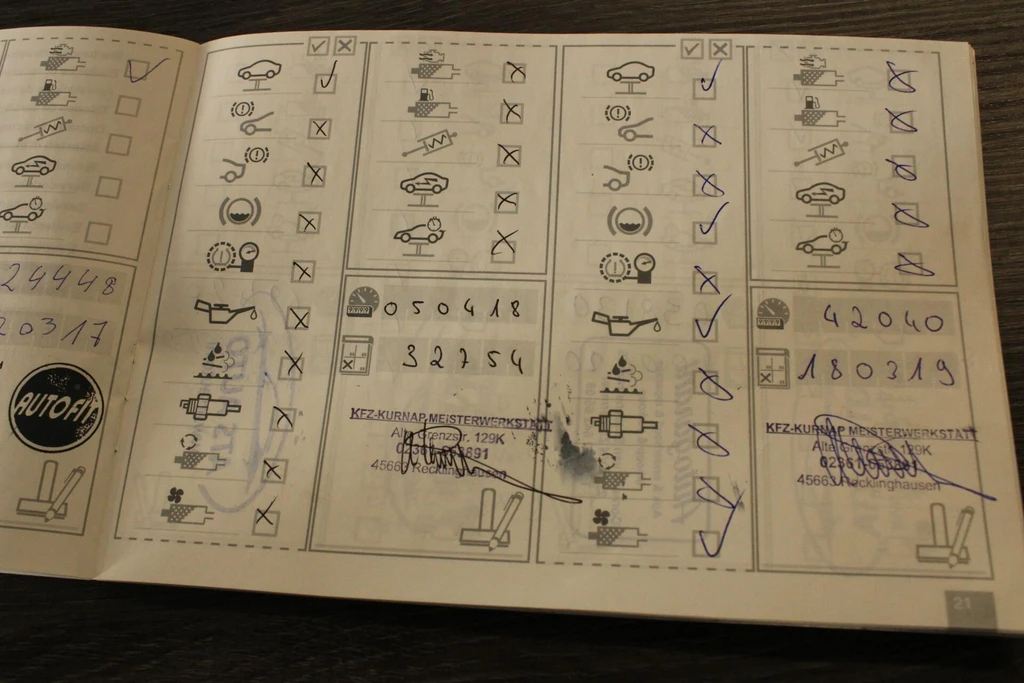 24448
20317
AUTOFIT
050418
32754
KFZ-KURNAP MEISTERWERKSTATT
Alte Grenzstr. 129K
45663 Recklinghausen
42040
180319
KFZ-KURNAP MEISTERWERKSTATT
Alte Grenzstr. 129K
45663 Recklinghausen
21